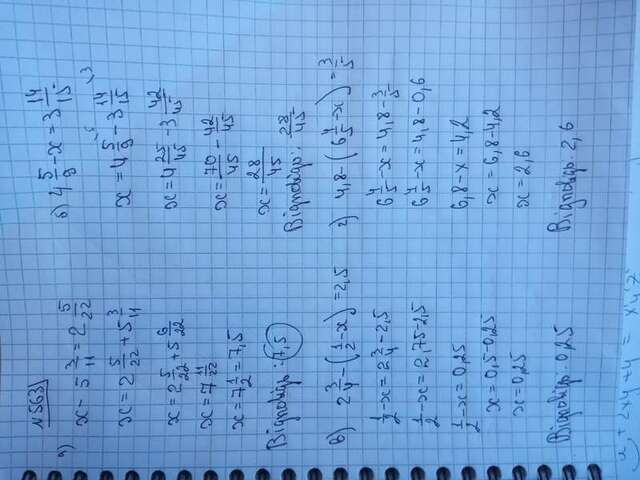 №563
а)
x - 5 3/11 = 2 5/22
x = 2 5/22 + 5 3/11
x = 2 5/22 + 5 6/22
x = 7 11/22
x = 7 1/2 = 7,5
Відповідь: 7,5
б) 4 5/9 - x = 3 14/15
x = 4 5/9 ⌄5 - 3 14/15 ⌄3
x = 4 25/45 - 3 42/45
x = 70/45 - 42/45
x = 28/45
Відповідь: 28/45
в) 2 3/4 - (1/2 - x) = 2,5
1/2 - x = 2 3/4 - 2,5
1/2 - x = 2,75 - 2,5
1/2 - x = 0,25
x = 0,5 - 0,25
x = 0,25
Відповідь: 0,25
г) 4,8 - (6 4/5 - x) = 3/5
6 4/5 - x = 4,8 - 3/5
6 4/5 - x = 4,8 - 0,6
6,8 - x = 4,2
x = 6,8 - 4,2
x = 2,6
Відповідь: 2,6